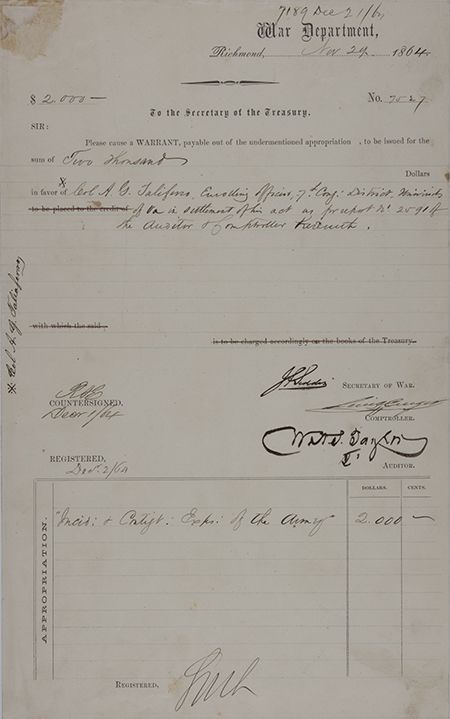 7189 Dec 21/64
War Department,
Richmond, Nov 29 1864.
$ 2.000— No. 7027
To the Secretary of the Treasury.
SIR:
Please cause a WARRANT, payable out of the undermentioned appropriation , to be issued for the
sum of Two thousand
Dollars
in favor of Col A G. Taliferro, Enrolling Officer, 7th Cong: District,
to be placed to the credit of of Va in settlement of his act as pr report No 2591 of
the Auditor & Comptroller herewith.
with which the said
is to be charged accordingly on the books of the Treasury.
x Col A. G Taliaferro
COUNTERSIGNED.
Decr 1/64
SECRETARY OF WAR.
COMPTROLLER.
REGISTERED,
Dec. 2/64
Taylor
AUDITOR.
DOLLARS. CENTS.
APPROPRIATION.
Incid: & Contgt: Exps: of the Army 2.000 —
REGISTERED,